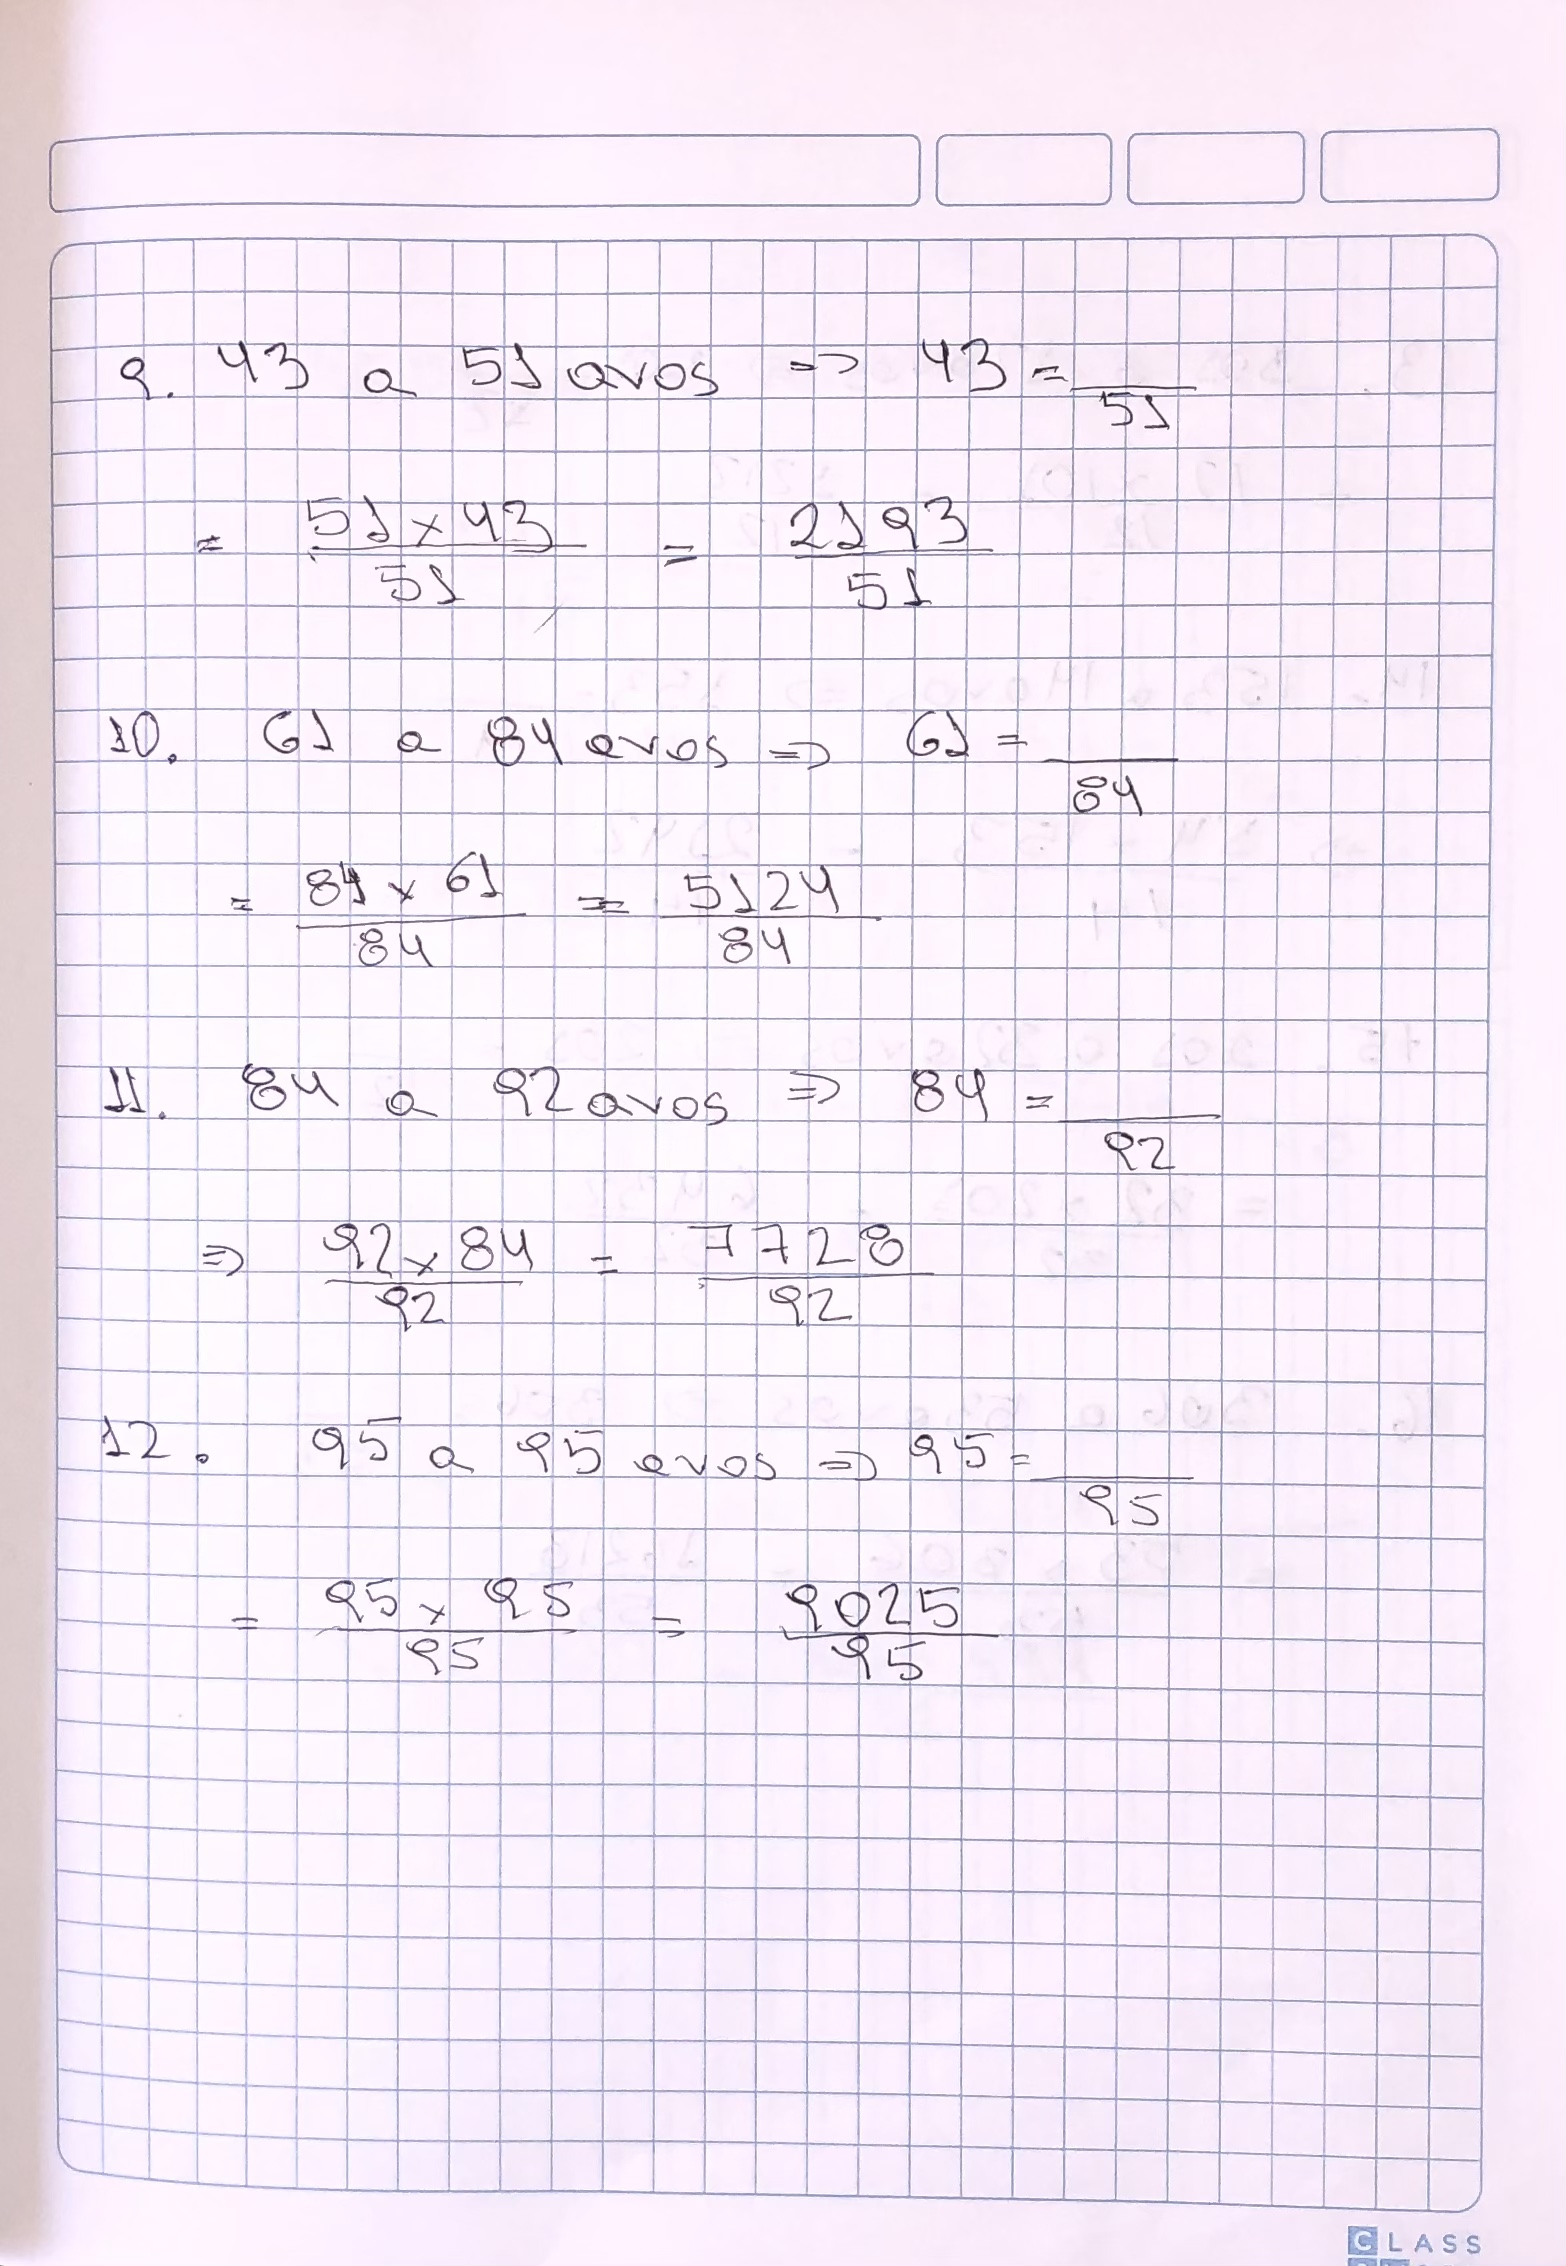 9. 43 a 51 avos => 43 = __/51
= 51 x 43/51 = 2193/51
10. 61 a 84 avos => 61 = __/84
= 84 x 61/84 = 5124/84
11. 84 a 92 avos => 84 = __/92
=> 92 x 84/92 = 7728/92
12. 95 a 95 avos => 95 = __/95
= 95 x 95/95 = 9025/95
CLASS